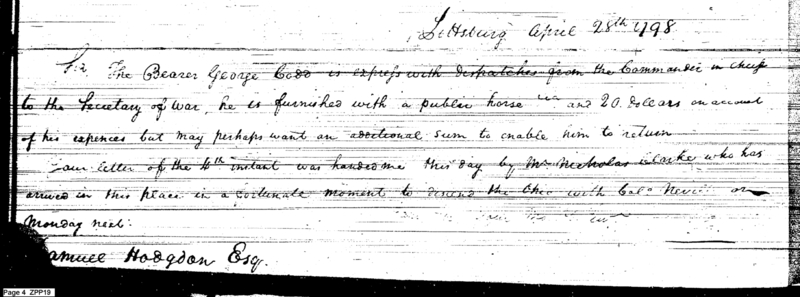 Pittsburg April 28th 1798
Sir The Bearer George Codd is express with dispatches from the Commander in Chief
to the Secretary of War, he is furnished with a public horse and 20 dollars on account
of his expences but may perhaps want an additional sum to enable him to return
our letter of the 4th instant was handed me this day by Mr Nicholas Clarke who has
arrived in this place in a fortunate moment to decend the Ohio with Colo Nevill on
Monday next.
amuel Hodgdon Esq.
Page 4 ZPP19